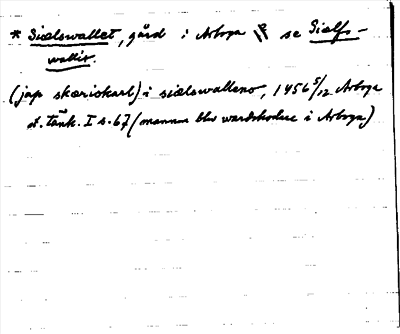 * Siælswallet, gård i Arboga se Siælfs-
wallit.
(jap skæriokarl) i siælswalleno, 1456 5/12 Arboga
st. tänk. I s. 67 (mannum blev wardskodere i Arboga)